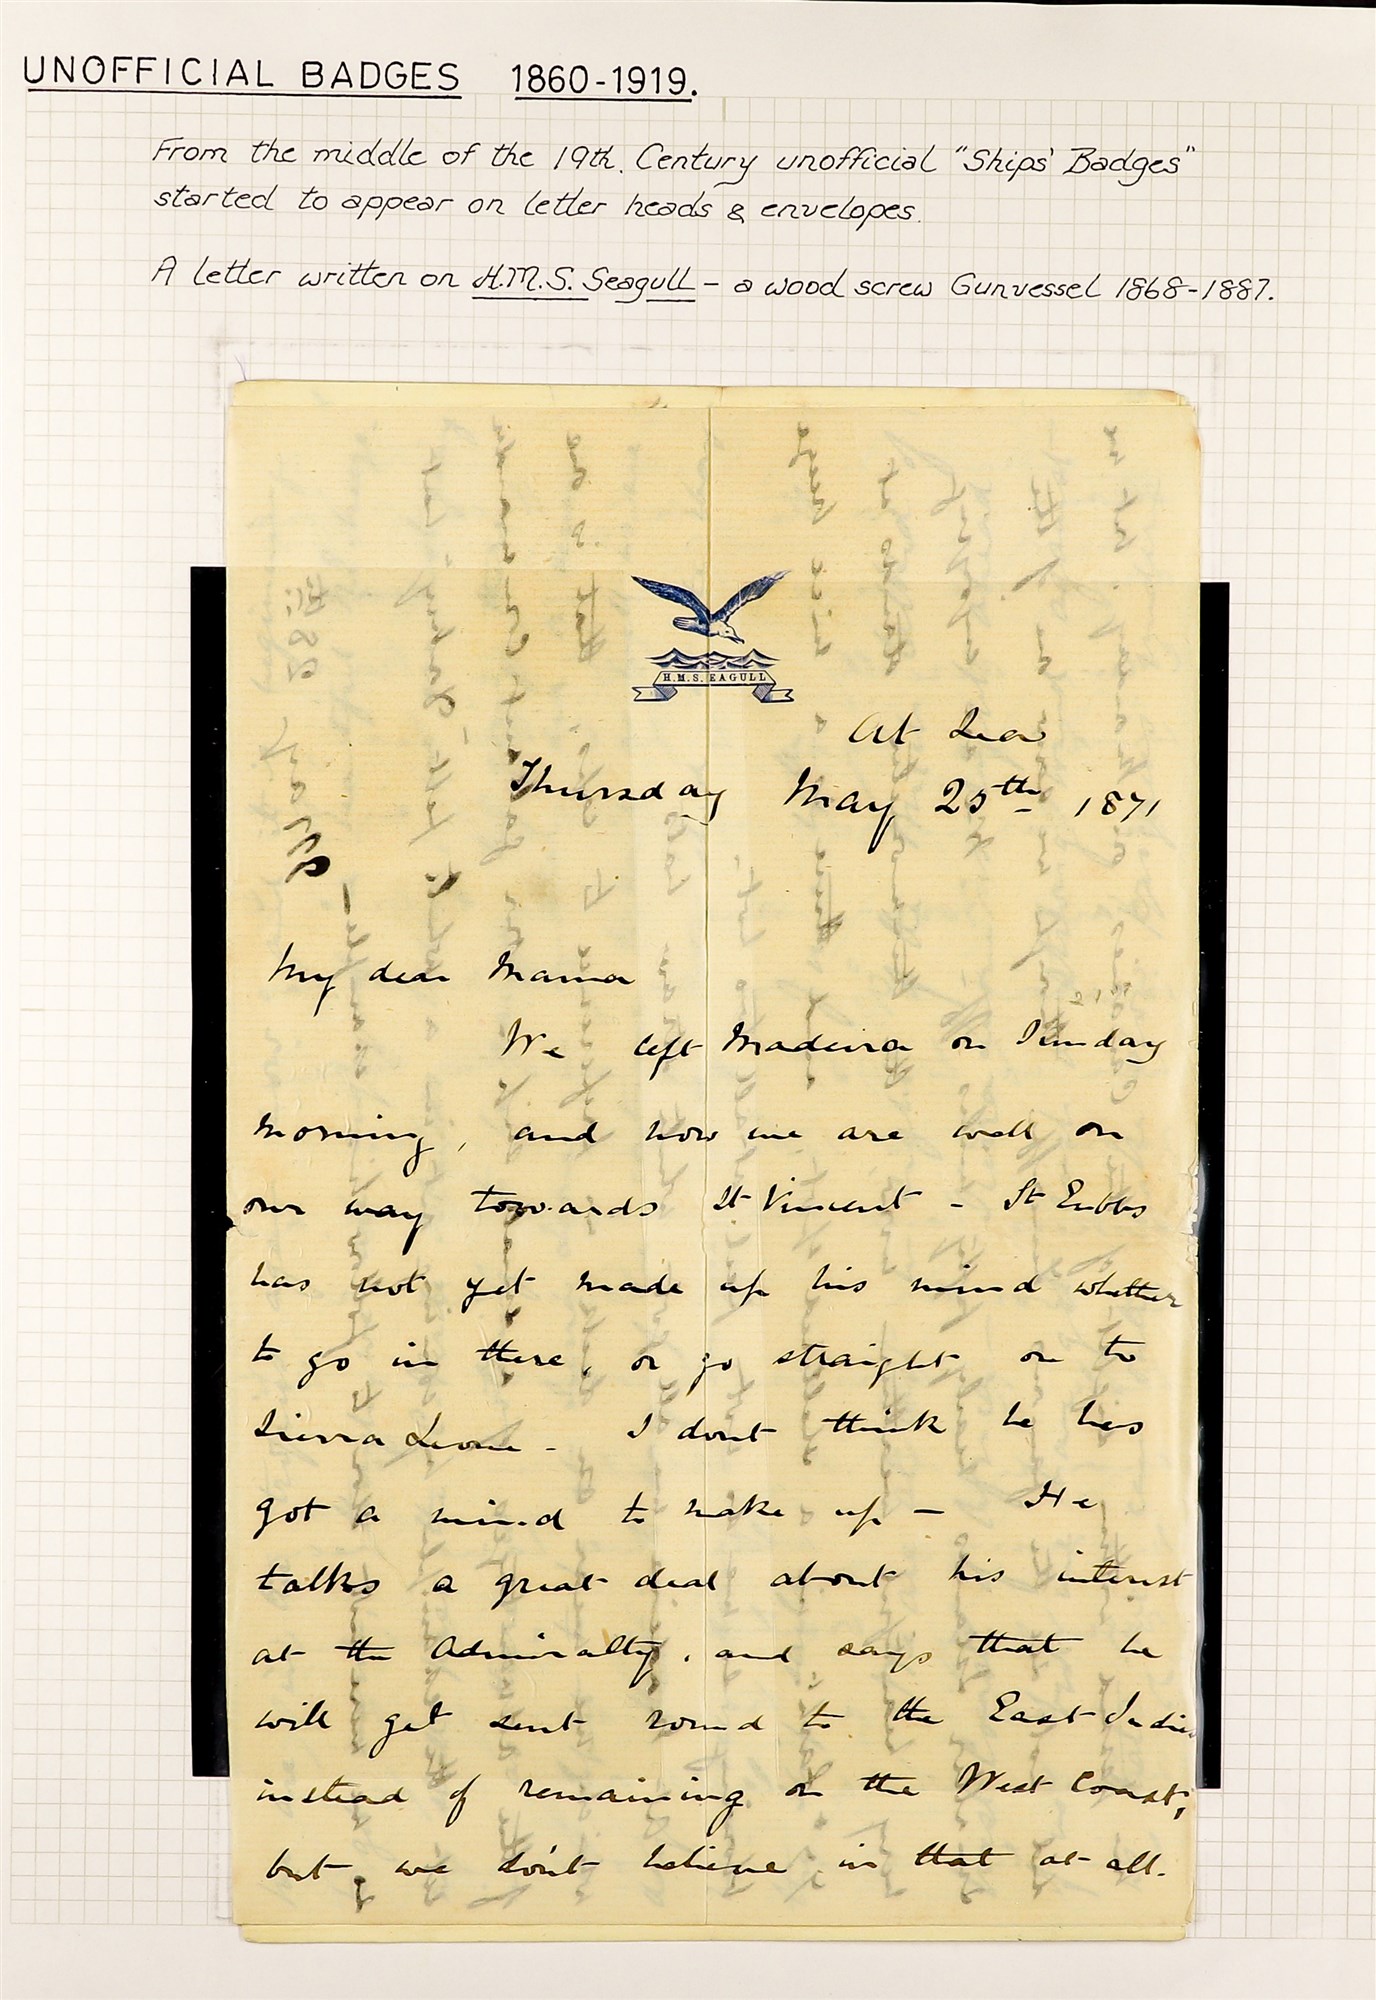 UNOFFICIAL BADGES 1860-1919.
From the middle of the 19th. Century unofficial "Ships' Badges"
started to appear on letter heads & envelopes.
A letter written on H.M.S. Seagull - a wood screw Gunvessel 1868-1887.
H.M.S. EAGULL
At Sea
Thursday May 25th 1871
My dear Mama
We left Madeira on Sunday
morning, and now we are well on
our way towards St Vincent - St
has not yet made up his mind whether
to go in there, or go straight on to
Sierra Leone - I dont think he has
got a mind to make up - He
talks a great deal about his interest
at the Admiralty, and says that he
will get sent round to the East Indies
instead of remaining on the West Coast,
but we don't believe in that at all.